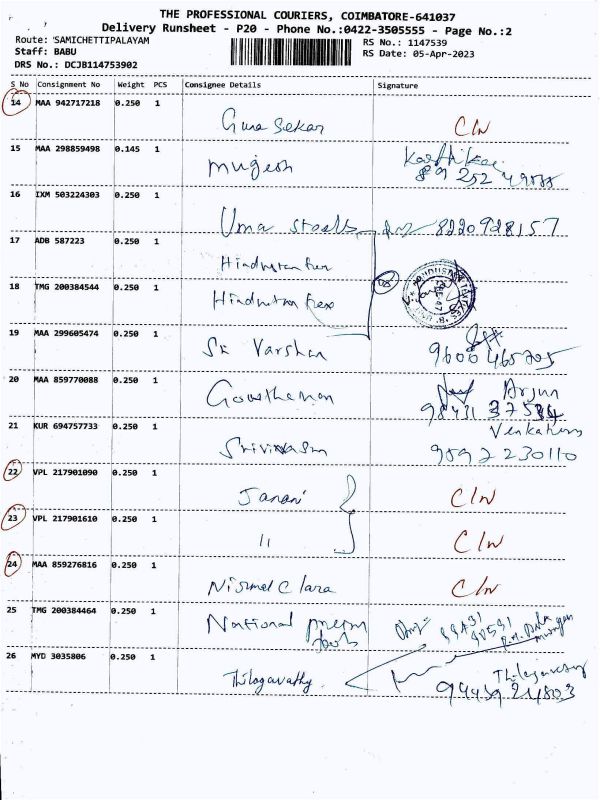 THE PROFESSIONAL COURIERS, COIMBATORE-641037
Delivery Runsheet - P20 - Phone No.:0422-3505555 - Page No.:2
Route: 'SAMICHETTIPALAYAM
RS No.: 1147539
Staff: BABU
RS Date: 05-Apr-2023
DRS No.: DCJB114753902
S No Consignment No Weight PCS Consignee Details Signature
14 MAA 942717218 0.250 1
Guna Sekar C/N
15 MAA 298859498 0.145 1
Mugesh Karthikai
16 IXM 503224303 0.250 1
Uma Steels 8220928157
17 ADB 587223 0.250 1
Hindustan
18 TMG 200384544 0.250 1
Hindustan
19 MAA 299605474 0.250 1
Sri Varshan 9600465705
20 MAA 859770088 0.250 1
Gowthaman Arjun
21 KUR 694757733 0.250 1
Srinivasan 9592230110
22 VPL 217901090 0.250 1
Janani C/N
23 VPL 217901610 0.250 1
11 C/N
24 MAA 859276816 0.250 1
Nirmal Clara C/N
25 TMG 200384464 0.250 1
National
tools
26 MYD 3035806 0.250 1
Thilagavathy